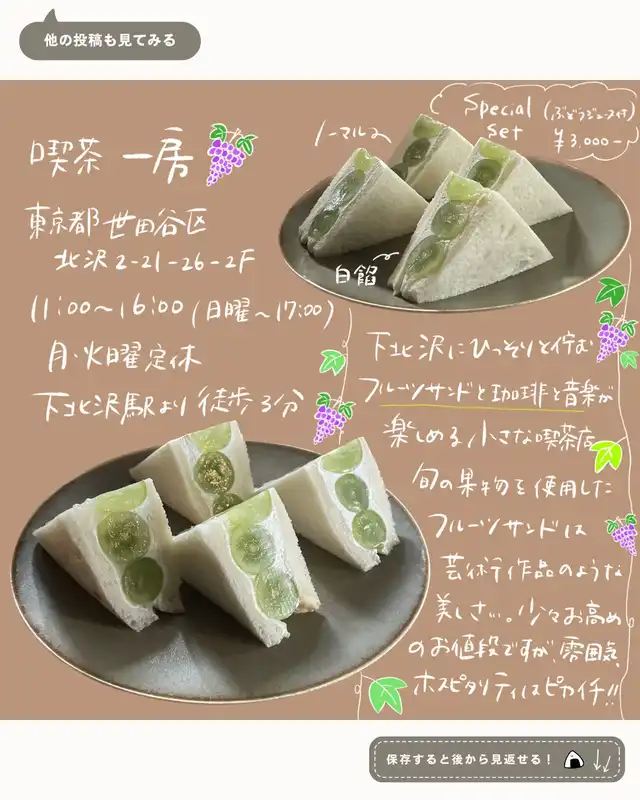 他の投稿も見てみる
喫茶 一房
東京都世田谷区
北沢2-21-26-2F
11:00〜16:00(日曜〜17:00)
月・火曜定休
下北沢駅より徒歩3分
Special (ぶどうジュース付)
set ¥3,000-
ノーマル
白餡
下北沢にひっそりと佇む
フルーツサンドと珈琲と音楽が
楽しめる小さな喫茶店
旬の果物を使用した
フルーツサンドは
芸術作品のような
美しさ。少々お高め
のお値段ですが、雰囲気、
ホスピタリティはピカイチ!!
保存すると後から見返せる!